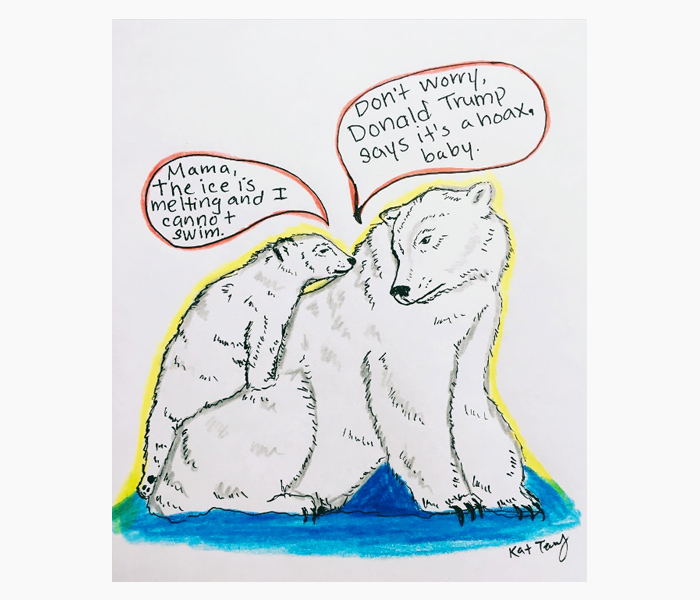 Mama,
the ice is
melting and I
cannot
swim.
Don't worry,
Donald Trump
says it's a hoax,
baby.